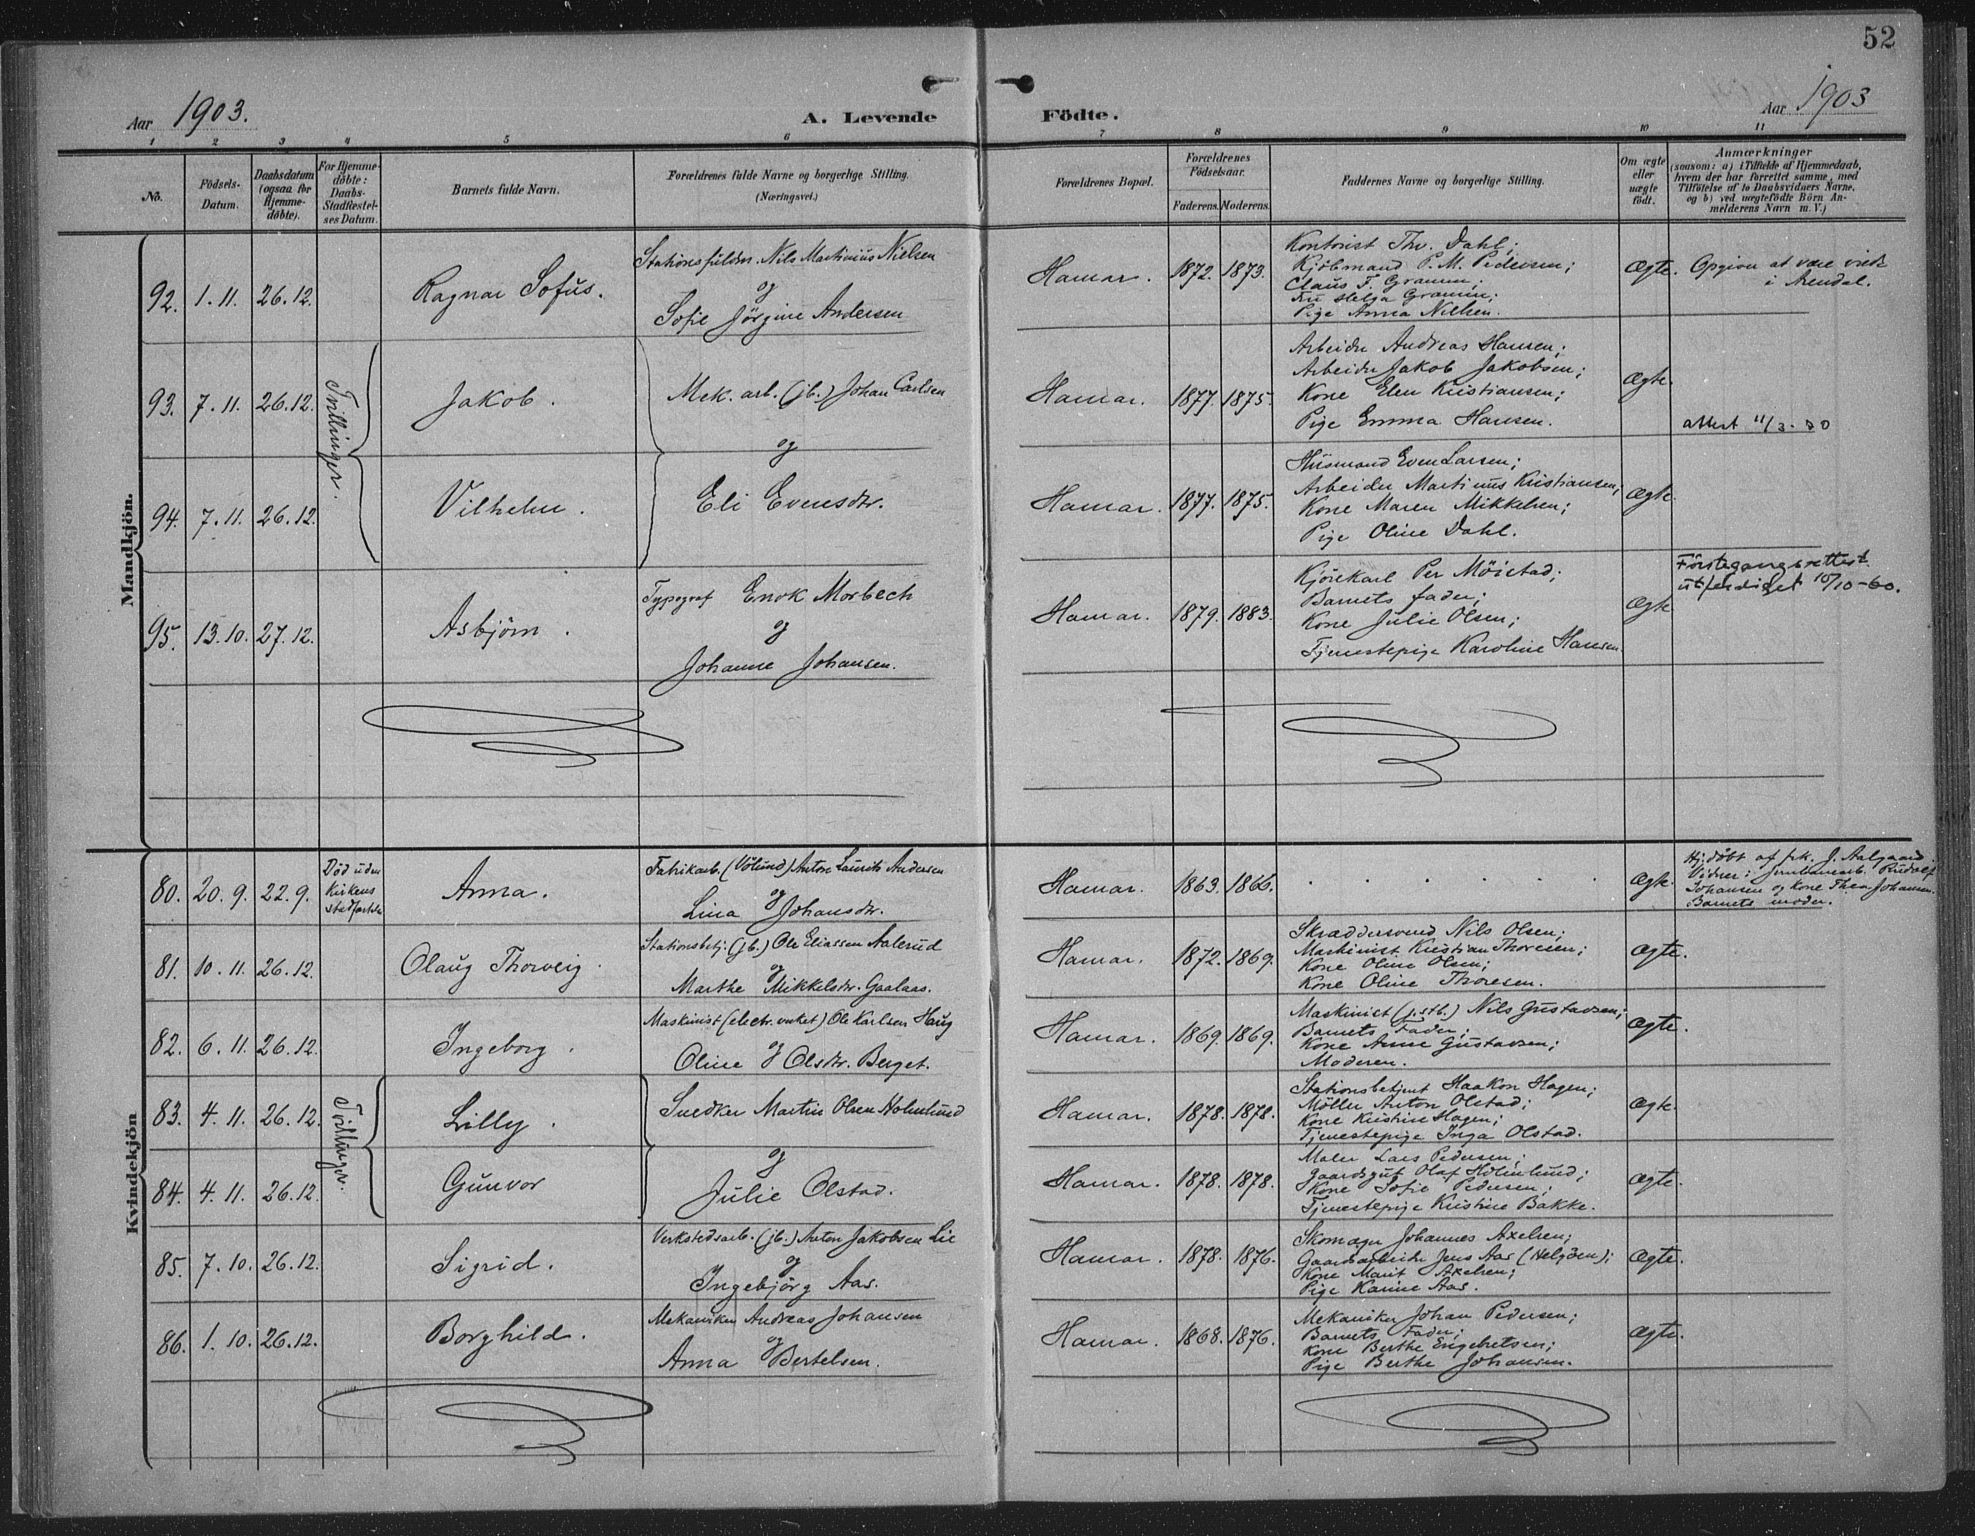 52
Aar 1903.
A. Levende
Födte.
Aar 1903
1 2 3 4 5 6 7 8 9 10 11
No.
Födsels-
Datum.
Daabsdatum
(ogsaa for
Hjemme-
döbte).
For Hjemme-
döbte:
Daabs-
Stadfæstel-
ses Datum.
Barnets fulde Navn.
Forældrenes fulde Navne og borgerlige Stilling.
(Næringsvei.)
Forældrenes Bopæl.
Forældrenes
Födselsaar.
Faderens. Moderens.
Faddernes Navne og borgerlige Stilling.
Om ægte
eller
uægte
födt.
Anmærkninger
(saasom: a) i Tilfælde af Hjemmedaab,
hvem der har forrettet samme, med
Tilföielse af to Daabsvidners Navne,
og b) ved uægtefödte Börn An-
melderens Navn m. V.)
Mandkjön.
92. 1.11. 26.12. Ragnar Sofus.
Nils Martinius Nielsen
og
Sofie Jörgine Andersen
Hamar. 1872. 1873.
Kontorist Thv. Dahl;
Kjöbmand P. M. Pedersen;
Claus F. Gramm;
Fru Helga Gramm;
Pige Anna Nielsen.
Ægte. Opgiver at være viede
i Arendal.
Tvillinger.
93. 7.11. 26.12. Jakob.
Mek. arb. (jb.) Johan Carlsen
og
Hamar. 1877. 1875.
Arbeider Andreas Hansen;
Arbeider Jakob Jakobsen;
Kone Elen Kristiansen;
Pige Emma Hansen.
Ægte.
attest 11/3-
94. 7.11. 26.12. Vilhelm.
Eli Evensdtr.
Hamar. 1877. 1875.
Husmand Even Larsen;
Arbeider Martinus Kristiansen;
Kone Maren Mikkelsen;
Pige Oline Dahl.
Ægte.
95. 13.10. 27.12. Asbjörn.
Typograf Enok Morbech
og
Johanne Johansen.
Hamar. 1879. 1883.
Kjörekarl Per Möistad;
Barnets fader;
Kone Julie Olsen;
Tjenestepige Karoline Hansen.
Ægte
Förstegangsattest
utferdiget 10/10-60.
Kvindekjön
80. 20.9. 22.9.
Död uden
Kirkens
stadfæstelse
Anna.
Fabrikarb. (Völund) Anton Laurits Andersen
og
Lina Johansdtr.
Hamar. 1863. 1866.
Ægte.
Hj. döbt af frk. J. Aalgaard.
Vidner: Jernbanearb. Rudolf
Johansen og Kone Thea Johansen.
Barnets moder.
81. 10.11. 26.12. Olaug Thorveig.
Stationsbetj. (jb.) Ole Eliassen Aalerud
og
Marthe Mikkelsdtr. Gaalaas.
Hamar. 1872. 1869.
Skræddersvend Nils Olsen;
Maskinist Kristian Thoresen;
Kone Oline Olsen;
Kone Oline Thoresen.
Ægte.
82. 6.11. 26.12. Ingeborg.
Maskinist (electr. verket) Ole Karlsen Haug
og
Oline Olsdtr. Berget.
Hamar. 1869. 1869.
Maskinist (j.stb.) Nils Gustavsen;
Barnets Fader;
Kone Anne Gustavsen;
Moderen.
Ægte.
Tvillinger.
83. 4.11. 26.12. Lilly.
Snedker Martin Olsen Holmlund
og
Hamar. 1878. 1878.
Stationsbetjent Haakon Hagen;
Möller Anton Olstad;
Kone Kristine Hagen;
Tjenestepige Inga Olstad.
Ægte.
84. 4.11. 26.12. Gunvor
Julie Olstad.
Hamar. 1878. 1878.
Maler Lars Pedersen;
Gaardsgut Olaf Holmlund;
Kone Sofie Pedersen;
Tjenestepige Kristine Bakke.
Ægte.
85. 7.10. 26.12. Sigrid.
Verkstedsarb. (jb.) Anton Jakobsen Lie
og
Ingebjörg Aas.
Hamar. 1878. 1876.
Skomager Johannes Axelsen;
Gaardsarbeider Jens Aas (Helgöen);
Kone Marit Axelsen;
Pige Karine Aas.
Ægte.
86. 1.10. 26.12. Borghild.
Mekaniker Andreas Johansen
og
Anna Bertelsen.
Hamar. 1868. 1876.
Mekaniker Johan Pedersen;
Barnets Fader;
Kone Berthe Engebretsen;
Pige Berthe Johansen.
Ægte.